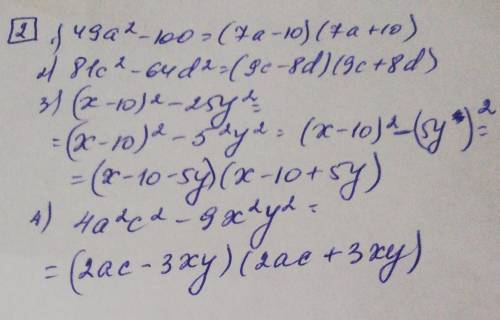 2 1) 49a² - 100 = (7a - 10)(7a + 10)
2) 81c² - 64d² = (9c - 8d)(9c + 8d)
3) (x - 10)² - 25y² =
= (x - 10)² - 5²y² = (x - 10)² - (5y)² =
= (x - 10 - 5y)(x - 10 + 5y)
4) 4a²c² - 9x²y² =
= (2ac - 3xy)(2ac + 3xy)